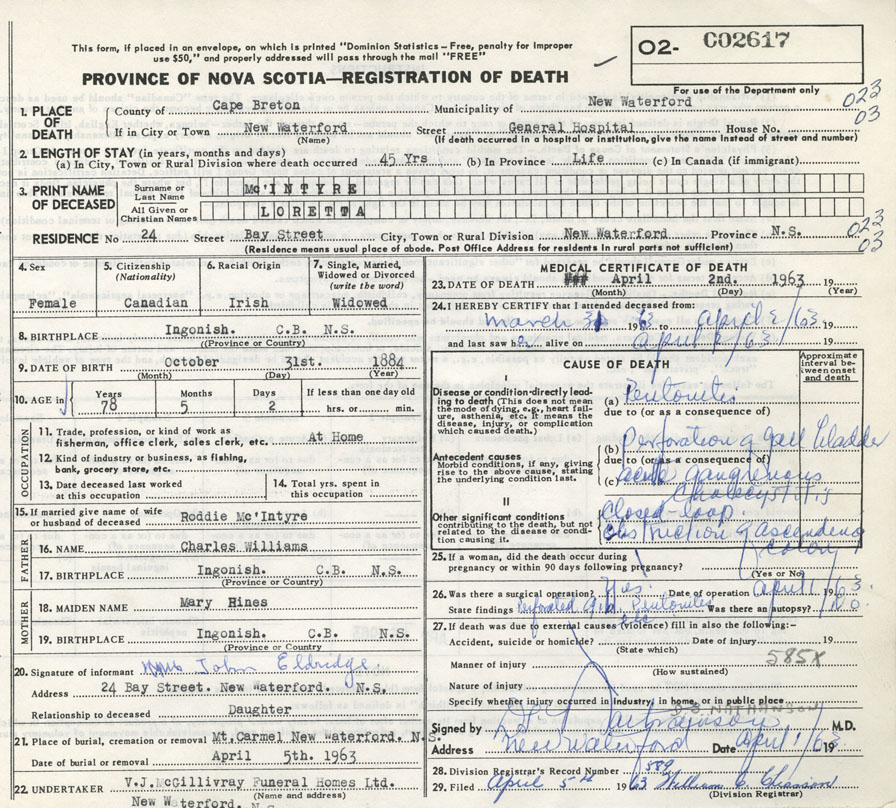 This form, if placed in an envelope, on which is printed "Dominion Statistics - Free, penalty for Improper
use $50," and properly addressed will pass through the mail "FREE"
O2- C02617
PROVINCE OF NOVA SCOTIA—REGISTRATION OF DEATH
For use of the Department only
023
03
1. PLACE OF DEATH
County of Cape Breton Municipality of New Waterford
If in City or Town New Waterford Street General Hospital House No.
(Name) (If death occurred in a hospital or institution, give the name instead of street and number)
2. LENGTH OF STAY (in years, months and days)
(a) In City, Town or Rural Division where death occurred 45 Yrs (b) In Province Life (c) In Canada (if immigrant)
3. PRINT NAME OF DECEASED
Surname or Last Name Mc'INTYRE
All Given or Christian Names LORETTA
023
03
RESIDENCE No 24 Street Bay Street City, Town or Rural Division New Waterford Province N.S.
(Residence means usual place of abode. Post Office Address for residents in rural parts not sufficient)
4. Sex
Female
5. Citizenship
(Nationality)
Canadian
6. Racial Origin
Irish
7. Single, Married, Widowed or Divorced
(write the word)
Widowed
8. BIRTHPLACE Ingonish. C.B. N.S.
((Province or Country)
9. DATE OF BIRTH October 31st. 1884
(Month) (Day) (Year)
10. AGE in
Years Months Days If less than one day old
78 5 2 hrs. or min.
OCCUPATION
11. Trade, profession, or kind of work as
fisherman, office clerk, sales clerk, etc. At Home
12. Kind of industry or business, as fishing,
bank, grocery store, etc.
13. Date deceased last worked
at this occupation
14. Total yrs. spent in
this occupation
15. If married give name of wife
or husband of deceased Roddie Mc'Intyre
FATHER
16. NAME Charles Williams
17. BIRTHPLACE Ingonish. C.B. N.S.
(Province or Country)
MOTHER
18. MAIDEN NAME Mary Hines
19. BIRTHPLACE Ingonish. C.B. N.S.
(Province or Country
20. Signature of informant Mrs John Eldridge.
Address 24 Bay Street. New Waterford. N.S.
Relationship to deceased Daughter
21. Place of burial, cremation or removal Mt.Carmel New Waterford. N.S.
Date of burial or removal April 5th. 1963
22. UNDERTAKER V.J.McGillivray Funeral Homes Ltd.
(Name and address)
New Waterford. N.S.
MEDICAL CERTIFICATE OF DEATH
23. DATE OF DEATH April 2nd. 1963 19
(Month) (Day) (Year)
24. I HEREBY CERTIFY that I attended deceased from:
March 31 1963 to April 2/63 19
and last saw her alive on April 2/63 19
CAUSE OF DEATH
Approximate interval between onset and death
I
Disease or condition directly leading to death (This does not mean the mode of dying, e.g., heart failure, asthenia, etc. It means the disease, injury, or complication which caused death.)
(a) Peritonitis
due to (or as a consequence of)
Antecedent causes
Morbid conditions, if any, giving rise to the above cause, stating the underlying condition last.
(b) Perforation of gall bladder
due to (or as a consequence of)
(c) acute gangrenous
Cholecystitis
II
Other significant conditions
contributing to the death, but not related to the disease or condition causing it.
Closed-loop
obstruction of Ascending
colon
25. If a woman, did the death occur during
pregnancy or within 90 days following pregnancy?
(Yes or No)
26. Was there a surgical operation? Yes Date of operation April 1 1963.
State findings Perforated G.B. Peritonitis etc Was there an autopsy? No
27. If death was due to external causes (violence) fill in also the following:-
Accident, suicide or homicide? Date of injury 19
(State which)
585X
Manner of injury
(How sustained)
Nature of injury
Specify whether injury occurred in Industry, in home, or in public place
Signed by M.D.
Address New Waterford Date April 1/63 19
28. Division Registrar's Record Number 589
29. Filed April 5th 1963
(Division Registrar)